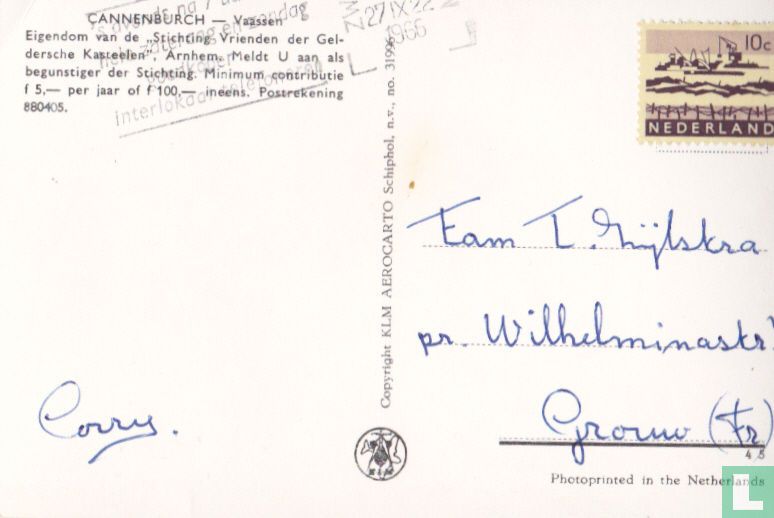 CANNENBURCH — Vaassen
Eigendom van de „Stichting Vrienden der Gel-
dersche Kasteelen", Arnhem. Meldt U aan als
begunstiger der Stichting. Minimum contributie
f 5,— per jaar of f 100,— ineens. Postrekening
880405.
's avonds na 7 uur
en zondag
interlokaal telefoneren
27 IX
1966
10c
NEDERLAND
Copyright KLM AEROCARTO Schiphol, n.v., no. 31996
Fam T. Zijlstra
pr. Wilhelminastr
Grouw (Fr)
Corry.
4 5
Photoprinted in the Netherlands